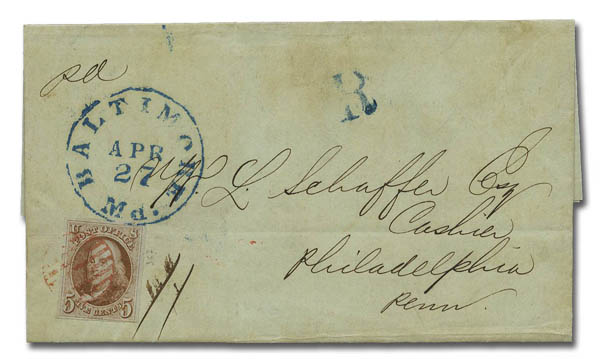 pd
R
BALTIMORE
APR
27
Md.
W. L. Schaffer Esq
Cashier
Philadelphia
Penn.
U S
POST OFFICE
5 FIVE CENTS 5